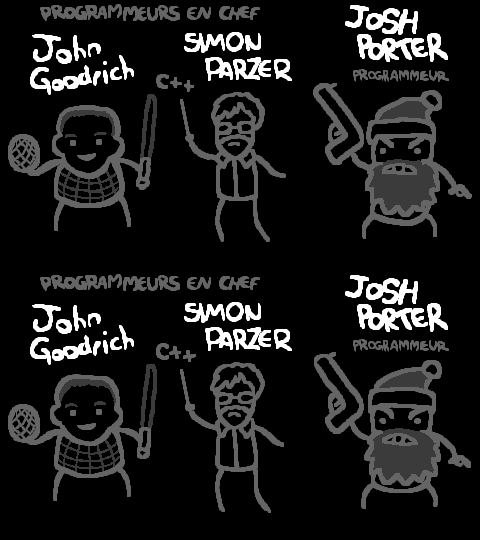 PROGRAMMEURS EN CHEF
John
Goodrich
SIMON
PARZER
C++
JOSH
PORTER
PROGRAMMEUR
PROGRAMMEURS EN CHEF
John
Goodrich
SIMON
PARZER
C++
JOSH
PORTER
PROGRAMMEUR